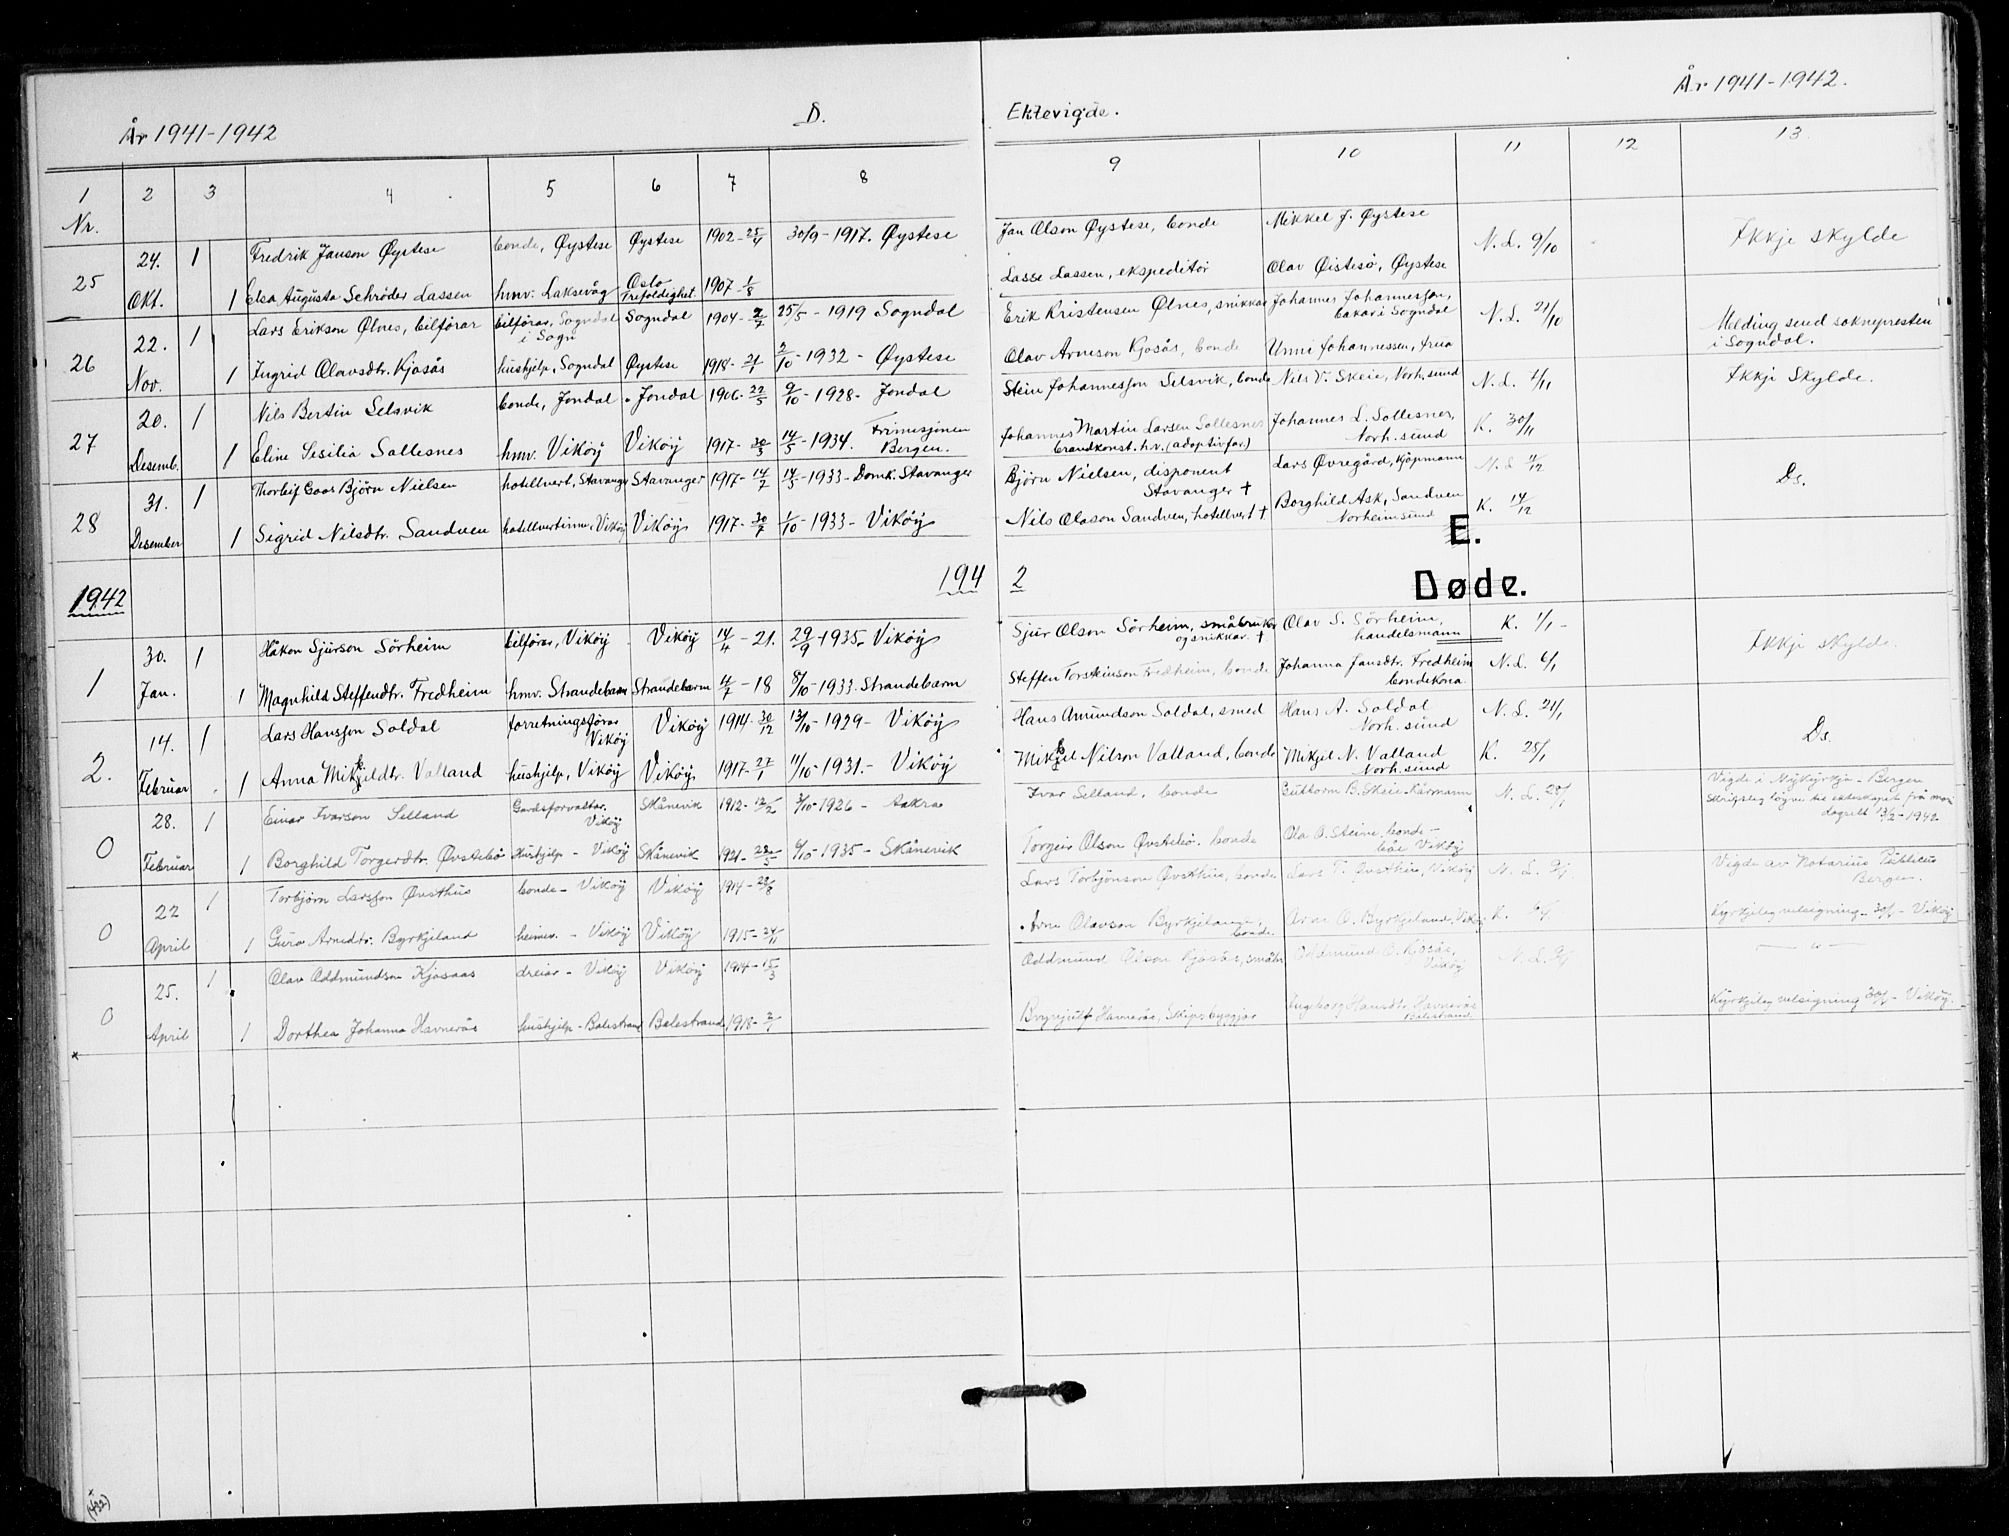 År 1941-1942 D. Ektevigde. År 1941-1942.
1 2 3 4 5 6 7 8 9 10 11 12 13.
Nr.
24. 1 Fredrik Janson Øystese bonde, Øystese Øystese 1902-25/4 30/9-1917. Øystese Jan Olson Øystese, bonde Mikkel J. Øystese N.L. 9/10 Ikkje skylde
25 Okt. 1 Elsa Augusta Schrøder Lassen hmv. Laksevåg Oslo Trefoldighet. 1907-1/8 Lasse Lassen, ekspeditør Olav Øistesö, Øystese
22. 1 Lars Erikson Ølnes, bilförar bilförar, Sogndal i Sogn Sogndal 1904-2/7 25/5-1919 Sogndal Erik Kristensen Ølnes, snikkar Johannes Johannesson, bakar i Sogndal N.L. 21/10 Melding send soknepresten i Sogndal.
26 Nov. 1 Ingrid Olavsdtr. Kjosås hushjelp, Sogndal Øystese 1918-21/1 2/10-1932-Øystese Olav Arneson Kjosås, bonde Unni Johannessen, frua
20. 1 Nils Bertin Selsvik bonde, Jondal Jondal 1906-22/5 9/10-1928-Jondal Stein Johannesson Selsvik, bonde Nils V. Skeie, Norh.sund N.L. 1/11 Ikkje Skylde.
27 Desemb. 1 Eline Sesilia Sollesnes hmv. Viköy Viköy 1917-30/3 14/5-1934. Frimisjonen Bergen. Johannes Martin Larsen Sollesnes brandkonst. h.v. (adoptivfar) Johannes L. Sollesnes, Norh.sund K. 30/11
31. 1 Thorleif Coos Björn Nielsen hotellvert, Stavanger Stavanger 1917-14/7 14/5-1933-Domk. Stavanger Björn Nielsen, disponent Stavanger † Lars Øvregård, Kjöpmann N.L. 4/12 Ds.
28 Desember 1 Sigrid Nilsdtr. Sandven hotellvertinne, Viköy Viköy 1917-30/7 1/10-1933-Viköy Nils Olason Sandven, hotellvert † Borghild Ask, Sandven Norheimsund K. 14/12
E.
1942 194 2 Døde.
30. 1 Håkon Sjurson Sörheim bilförar, Viköy Viköy 14/4-21. 29/9-1935-Viköy Sjur Olson Sörheim, småbrukar og snikkar. † Olav S. Sörheim, handelsmann K. 1/1- Ikkje skylde.
1 Jan. 1 Magnhild Steffendtr. Fredheim hmv. Strandebarm Strandebarm 4/7-18 8/10-1933-Strandebarm Steffen Torsteinson Fredheim, bonde Johanna Jansdtr. Fredheim bondekona N.L. 6/1
14. 1 Lars Hansson Soldal forretningsförar Viköy Viköy 1914-30/12 13/10-1929-Viköy Hans Amundson Soldal, smed Hans A. Soldal Norh.sund N.L. 24/1 Ds.
2. Februar 1 Anna Mikjeldtr. Valland hushjelp, Viköy Viköy. 1917-27/1 11/10-1931.-Viköy Mikjel Nilson Valland, bonde Mikjel N. Valland Norh.sund K. 25/1
28. 1 Einar Ivarson Selland Gardsforvaltar. Viköy Skånevik 1912-12/2 3/10-1926-Aakra Ivar Selland, bonde Guttorm B. Skeie-Kårmann N.L. 28/1 Vigde i Nykyrkja-Bergen
0 Februar 1 Borghild Torgerdtr. Øvstebö Hushjelp-Viköy Skånevik 1921-22/5 6/10-1935-Skånevik Torgeir Olson Øvstebö. bonde Ola O. Steine bonde- Viköy
22 1 Torbjörn Larsson Øvsthus bonde-Viköy Viköy 1914-28/8 Lars Torbjönson Øvsthus, bonde Lars T. Øvsthus, Viköy N.L. Vigde av Notarius Publicus Bergen.
0 April 1 Guro Arnedtr. Byrkjeland heimev.-Viköy Viköy 1915-24/11 Arne Olavson Byrkjeland, bonde. Arne O. Byrkjeland K. Kyrkjeleg velsigning-30/4-Viköy
25. 1 Olav Oddmundson Kjosaas dreiar-Viköy Viköy 1914-15/3 Oddmund Olson Kjosås, småbr. Oddmund O. Kjosås, Viköy N.L. -"-
0 April 1 Dorthea Johanna Havnerås hushjelp-Balestrand Balestrand 1918-2/1 Brynjulf Havnerås, Skipsbyggjar Ingeborg Hansdtr. Havnerås Balestrand Kyrkjeleg velsigning 30/4-Viköy.
(432)